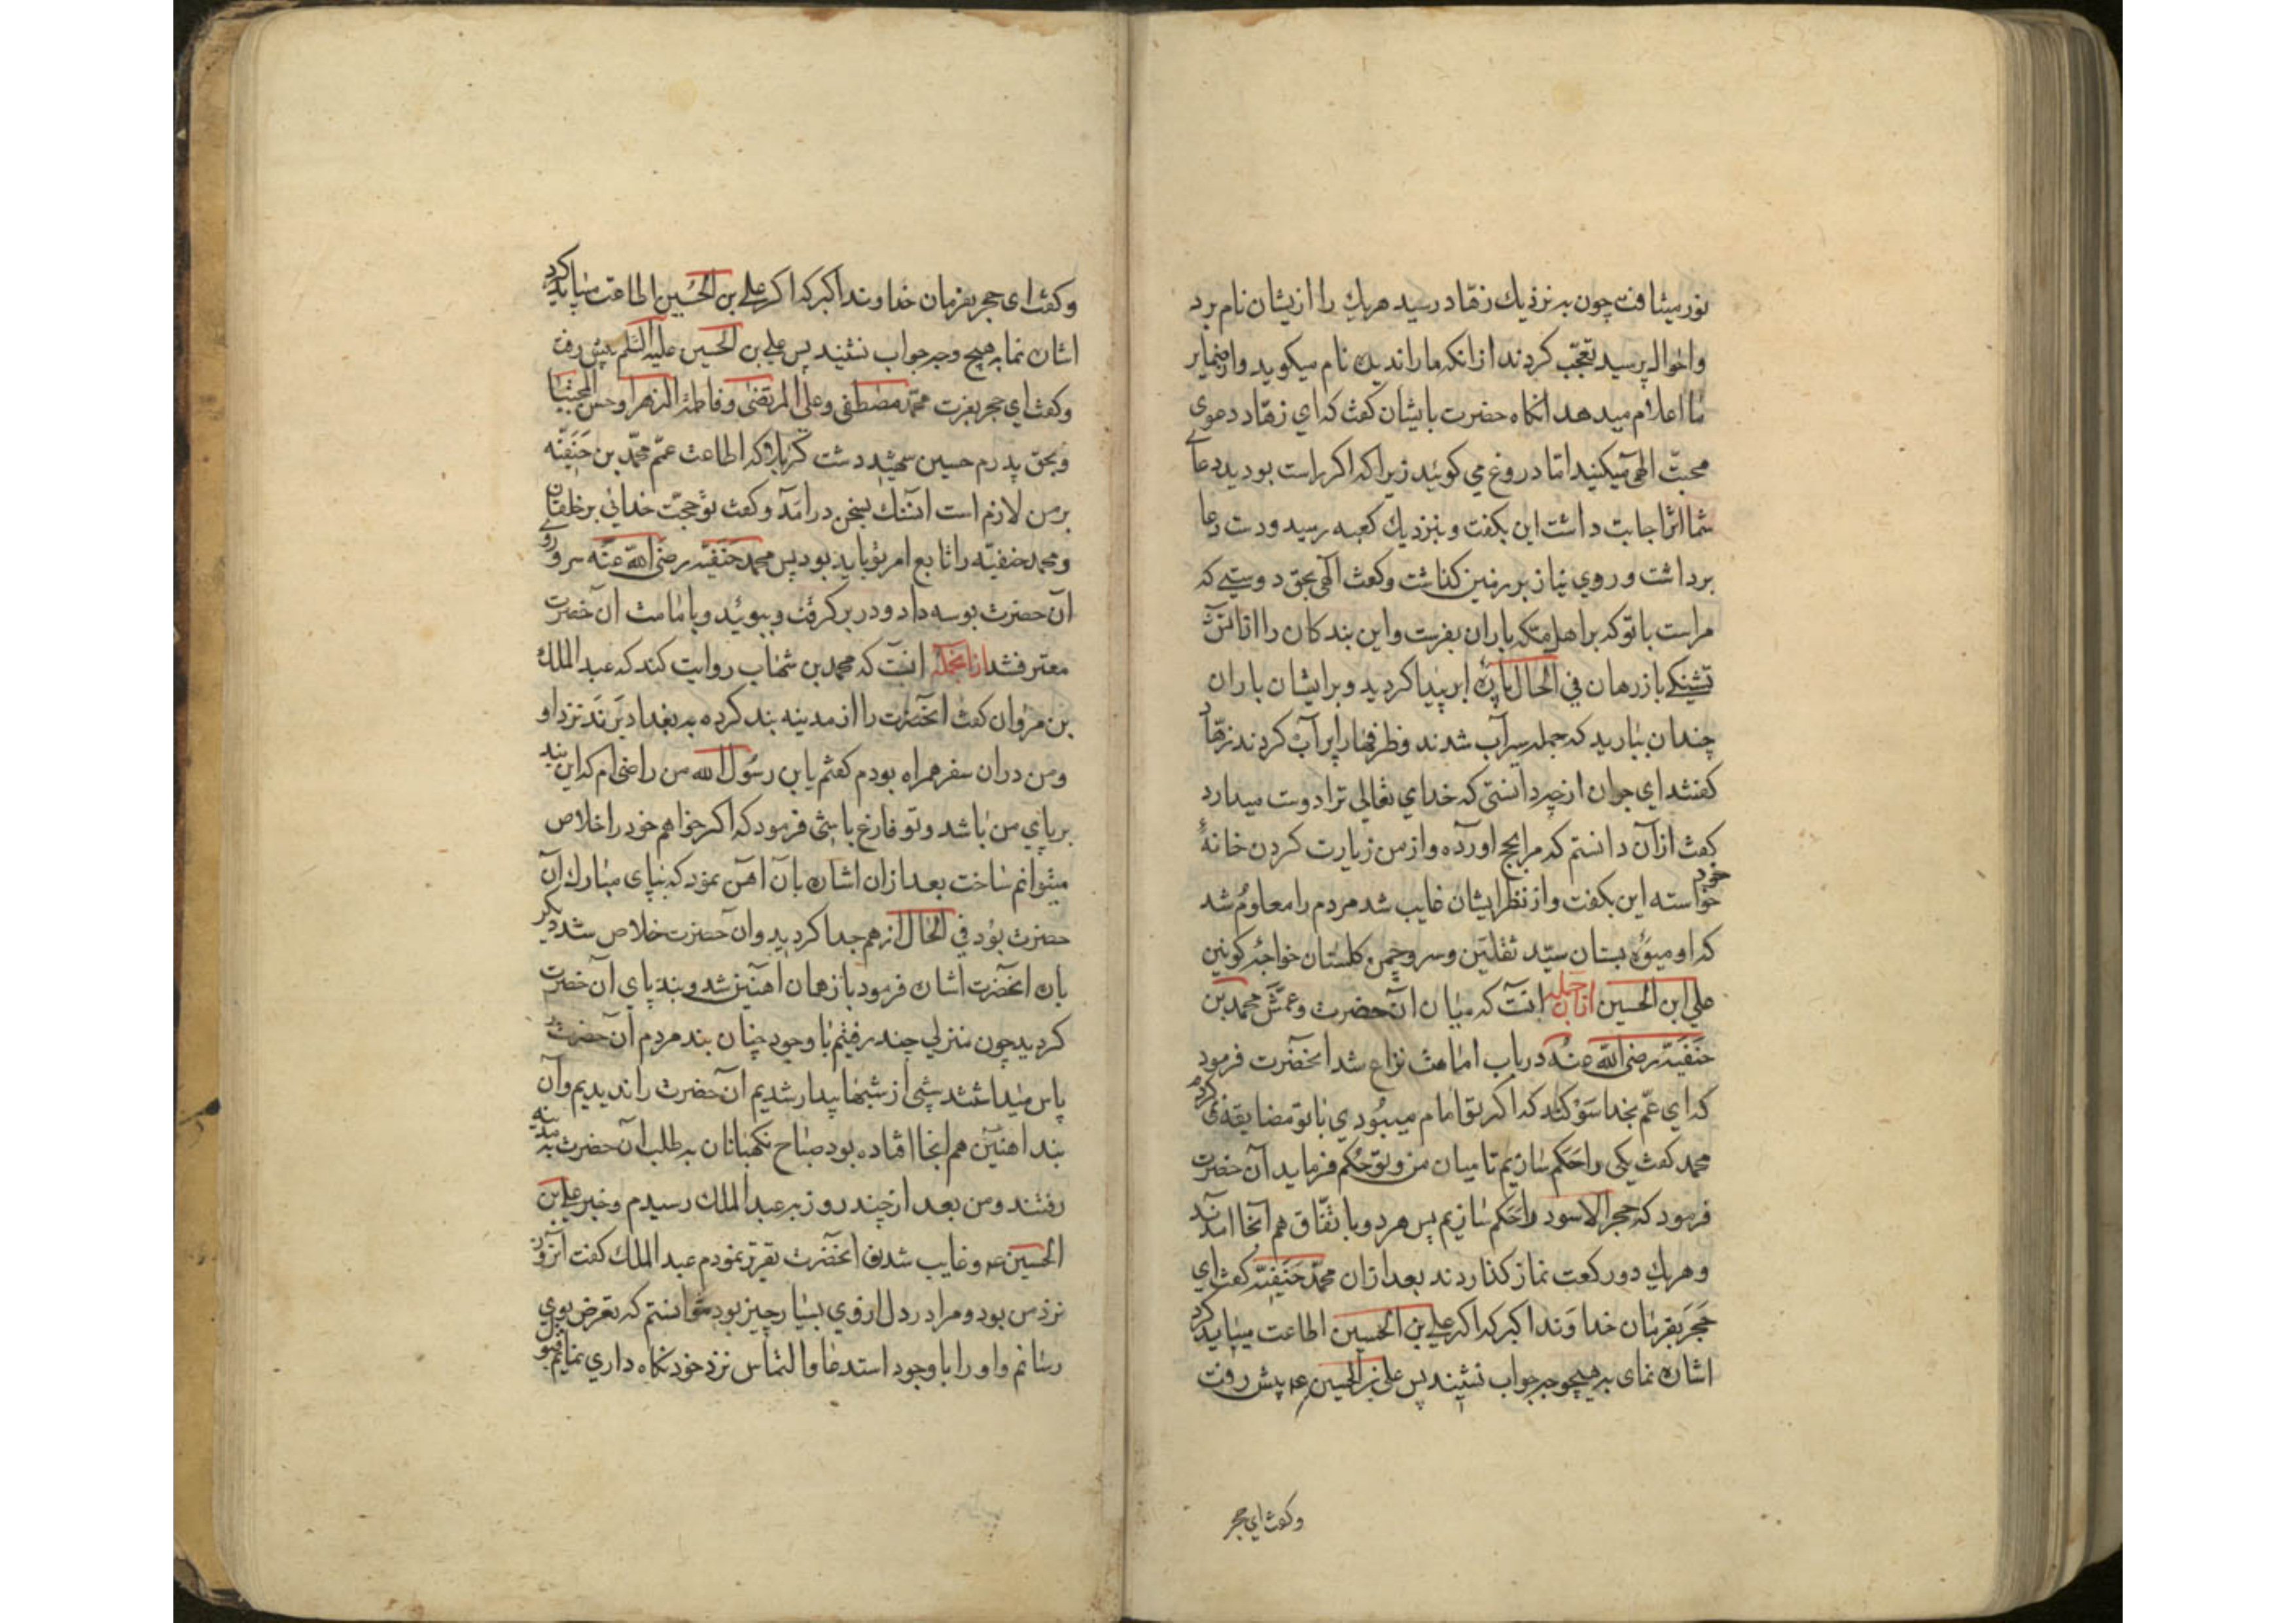 نور میتافت چون به نزدیك زهّاد رسید هریك را ازیشان نام برد
واحوال پرسید تعجّب کردند ازانکه ما را ندیده نام میکوید واز ضمایر
ما اعلام میدهد انکاه حضرت بایشان کفت که ای زهّاد دعوی
محبّت الهی میکنید امّا دروغ می کوئید زیرا که اکر راست بودید دعاے
شما اثر اجابت داشت این بکفت و بنزدیك کعبه رسید و دست دعا
برداشت و روی نیاز بر زمین کذاشت و کفت الهی بحق دوستیے که
مراست با تو که بر اهل مکّه باران بفرست و این بندکان را از اتش
تشنکے باز رهان فی الحال پارهٔ ابر پیدا کردید و بر ایشان باران
چندان ببارید که جمله سیرآب شدند و ظرفها را پر آب کردند زهّاد
کفتند ای جوان از چه دانستی که خدای تعالی ترا دوست میدارد
کفت ازآن دانستم که مرا بحج اورده و از من زیارت کردن خانهٔ خود
خواسته این بکفت و از نظر ایشان غایب شد مردم را معلوم شد
که او میوهٔ بستان سیّد ثقلین و سرو چمن کلستان خواجهٔ کونین
علی ابن الحسین ازان جمله انست که میان آن حضرت و عمّش محمد بن
حنفیّه رضی الله عنه در باب امامت نزاع شد انحضرت فرمود
که ای عمّ بخدا سوکند که اکر تو امام میبودی با تو مضایقه نمی کردم
محمد کفت یکی را حَکم سازیم تا میان من و تو حُکم فرماید آن حضرت
فرمود که حجر الاسود را حَکم سازیم پس هر دو باتّفاق هم آنجا امدند
و هریك دو رکعت نماز کذاردند بعد ازان محمّد حنفیّه کفت ای
حَجَر بفرمان خداوند اکبر که اکر علی بن الحسین اطاعت میباید کرد
اشاره نمای به هیچ وجه جواب نشنید پس علی بن الحسین ع پیش رفت
و کفت ای حجر
و کفت ای حجر بفرمان خداوند اکبر که اکر علی بن الحُسین اطاعت میباید کرد
اشاره نما به هیچ وجه جواب نشنید پس علی بن الحسین علیه السلم پیش رفت
و کفت ای حجر بعزت محمّد مصطفی و علی المرتضی و فاطمة الزهرا و حسن المجتبا
و بحق پدرم حسین شهید دشت کربلا که اطاعت عمّم محمّد بن حَنَفیّه
بر من لازم است ان سنك بسخن درامد و کفت تو حجّت خدائی بر خلقان
و محمد حنفیّه را تابع امر تو باید بود پس محمد حَنَفیّه رضی الله عنه سر و روے
آن حضرت بوسه داد و در بر کرفت و ببوئید و بامامت آن حضرت
معترف شد ازانجمله انست که محمد بن شهاب روایت کند که عبد الملك
بن مروان کفت انحضرت را از مدینه بند کرده به بغداد بَرَند نزد او
و من دران سفر همراه بودم کفتم یابن رسُول الله من راضی ام که این بند
بر پای من باشد و تو فارغ باشی فرمود که اکر خواهم خود را خلاص
میتوانم ساخت بعد ازان اشاره بآن اهن نمود که بپای مبارك آن
حضرت بود فی الحال از هم جدا کردید و آن حضرت خلاص شد دیکر
باره انحضرت اشاره فرمود باز همان اهنین شد و بند پای آن حضرت
کردید چون منزلی چند رفتیم با وجود چنان بند مردم آن حضرت را
پاس میداشتند شبی از شبها بیدار شدیم آن حضرت را ندیدیم و آن
بند اهنین هم انجا افتاده بود صباح نکهبانان به طلب آن حضرت به مدینه
رفتند و من بعد از چند روز به عبد الملك رسیدم و خبر علی بن
الحسین ع و غایب شدن انحضرت تقریر نمودم عبد الملك کفت آنروز
نزد من بود و مرا در دل از وی بسیار چیز بود نتوانستم که تعرض بوی
رسانم و او را با وجود استدعا و التماس نزد خود نکاه داری نمایم قبول